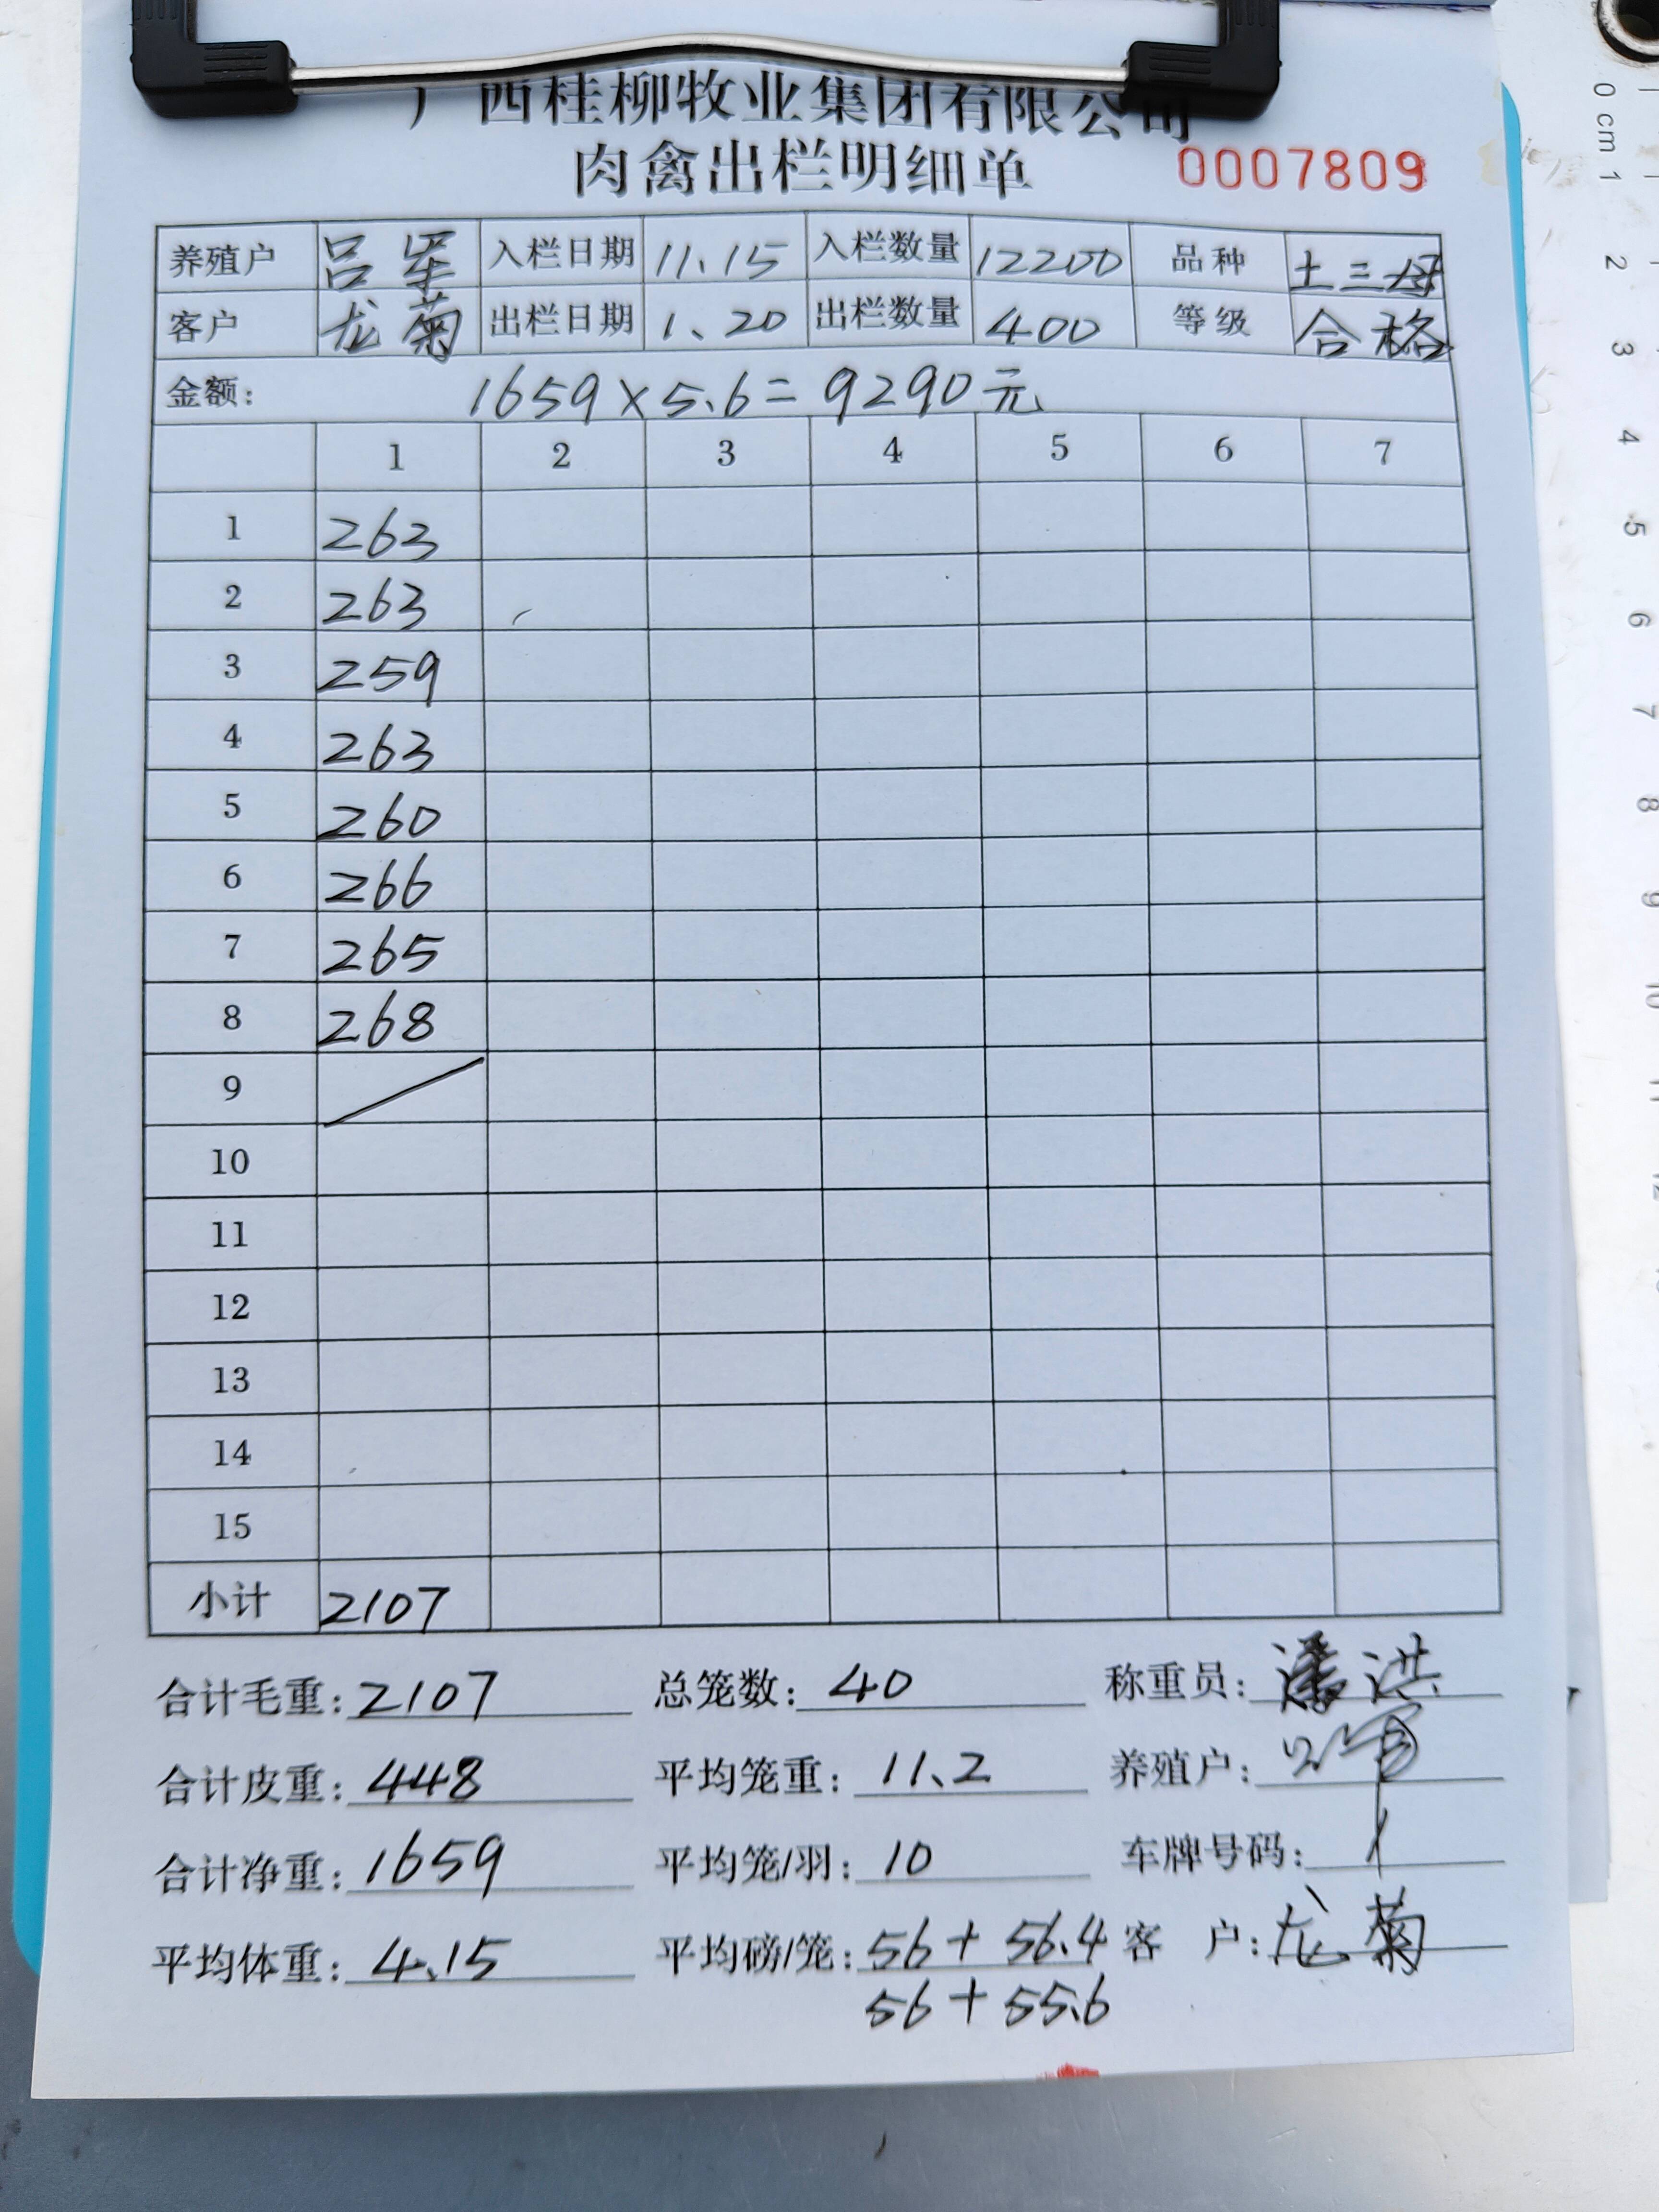 广西桂柳牧业集团有限公司
肉禽出栏明细单 0007809
养殖户 吕军 入栏日期 11.15 入栏数量 12200 品种 土三母
客户 龙菊 出栏日期 1.20 出栏数量 400 等级 合格
金额: 1659×5.6=9290元
1 2 3 4 5 6 7
1 263
2 263
3 259
4 263
5 260
6 266
7 265
8 268
9
10
11
12
13
14
15
小计 2107
合计毛重: 2107 总笼数: 40 称重员: 潘洪
合计皮重: 448 平均笼重: 11.2 养殖户:
合计净重: 1659 平均笼/羽: 10 车牌号码:
平均体重: 4.15 平均磅/笼: 56+56.4 客 户: 龙菊
56+55.6
0 cm 1
2
3
4
5
6
7
8
9
10
11
12